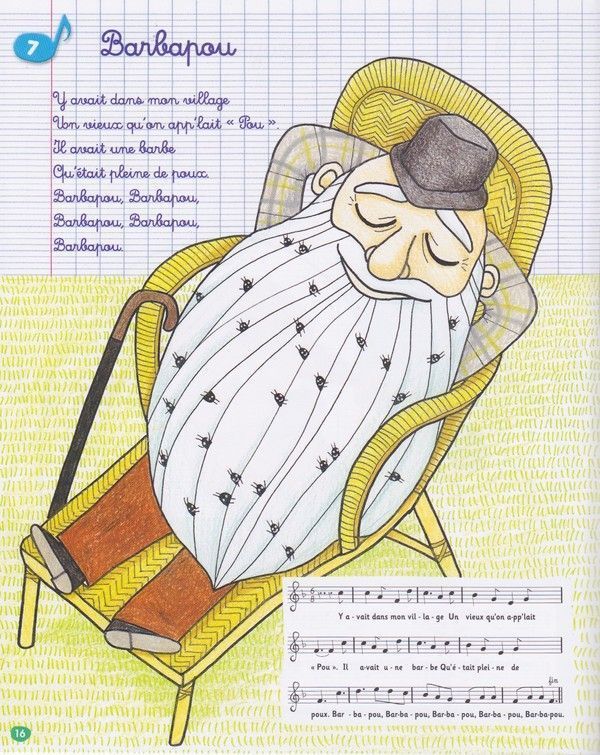 7
Barbapou
Y avait dans mon village
Un vieux qu'on app'lait « Pou ».
Il avait une barbe
Qu'était pleine de poux.
Barbapou, Barbapou,
Barbapou, Barbapou,
Barbapou.
Y a - vait dans mon vil - la - ge Un vieux qu'on a-pp'lait
« Pou ». Il a-vait u - ne bar - be Qu'é - tait plei - ne de
fin
poux. Bar - ba - pou, Bar-ba - pou, Bar-ba - pou, Bar-ba-pou, Bar-ba-pou.
16